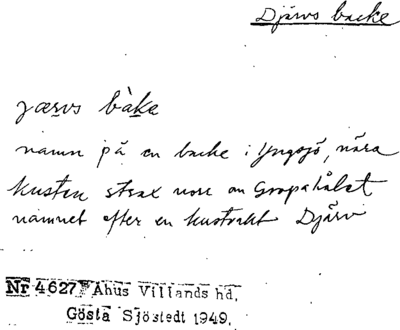 Djärvs backe
jærvs bàke
namn på en backe i Yngsjö, nära
kusten strax norr om Gropahålet
namnet efter en kustvakt Djärv
Nr 4627 Åhus Villands hd.
Gösta Sjöstedt 1949.